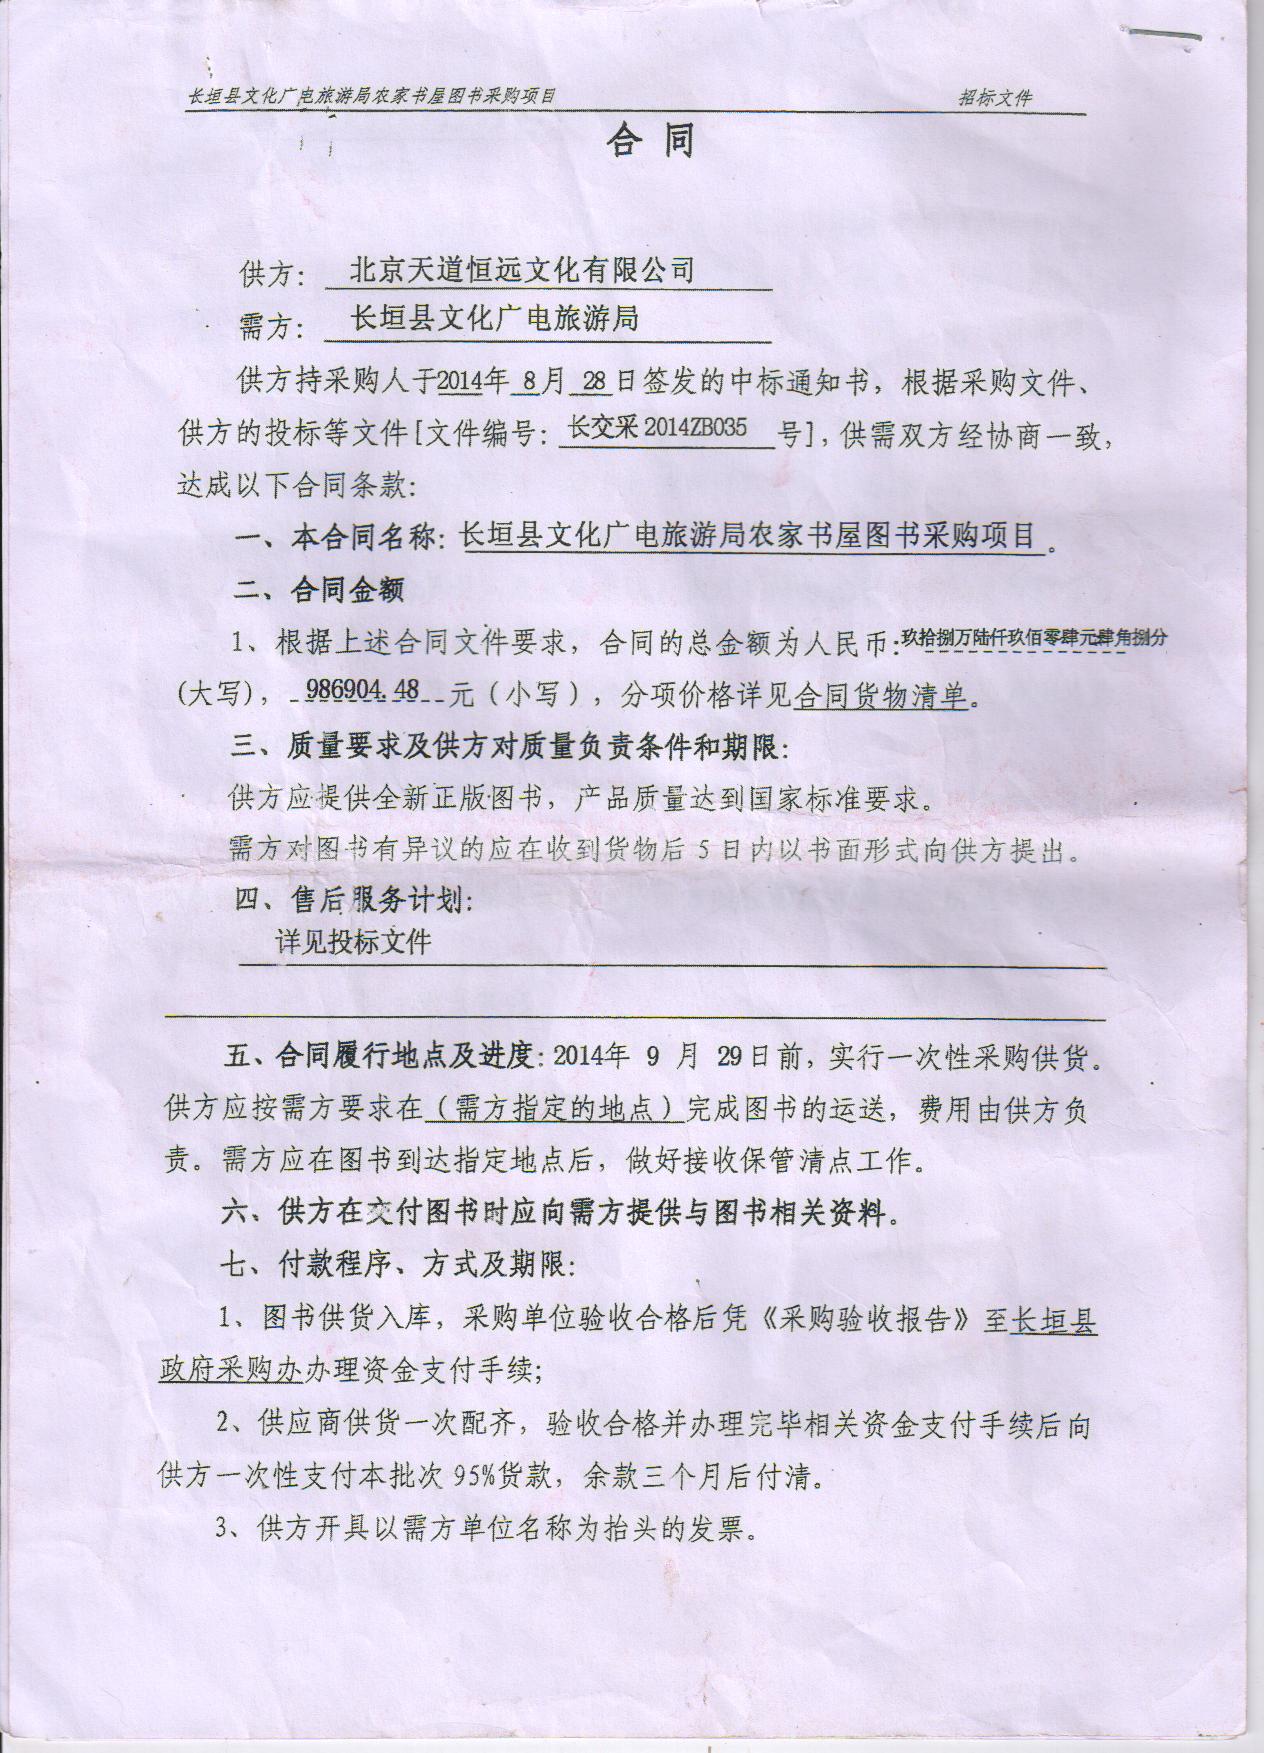 长垣县文化广电旅游局农家书屋图书采购项目 招标文件
合 同
供方： 北京天道恒远文化有限公司
需方： 长垣县文化广电旅游局
供方持采购人于2014年 8月 28日签发的中标通知书，根据采购文件、
供方的投标等文件[文件编号：长交采2014ZB035 号]，供需双方经协商一致，
达成以下合同条款：
一、本合同名称：长垣县文化广电旅游局农家书屋图书采购项目。
二、合同金额
1、根据上述合同文件要求，合同的总金额为人民币：玖拾捌万陆仟玖佰零肆元肆角捌分
(大写)，986904.48元（小写），分项价格详见合同货物清单。
三、质量要求及供方对质量负责条件和期限：
供方应提供全新正版图书，产品质量达到国家标准要求。
需方对图书有异议的应在收到货物后 5 日内以书面形式向供方提出。
四、售后服务计划：
详见投标文件
五、合同履行地点及进度：2014年 9 月 29日前，实行一次性采购供货。
供方应按需方要求在（需方指定的地点）完成图书的运送，费用由供方负
责。需方应在图书到达指定地点后，做好接收保管清点工作。
六、供方在交付图书时应向需方提供与图书相关资料。
七、付款程序、方式及期限：
1、图书供货入库，采购单位验收合格后凭《采购验收报告》至长垣县
政府采购办办理资金支付手续；
2、供应商供货一次配齐，验收合格并办理完毕相关资金支付手续后向
供方一次性支付本批次 95%货款，余款三个月后付清。
3、供方开具以需方单位名称为抬头的发票。